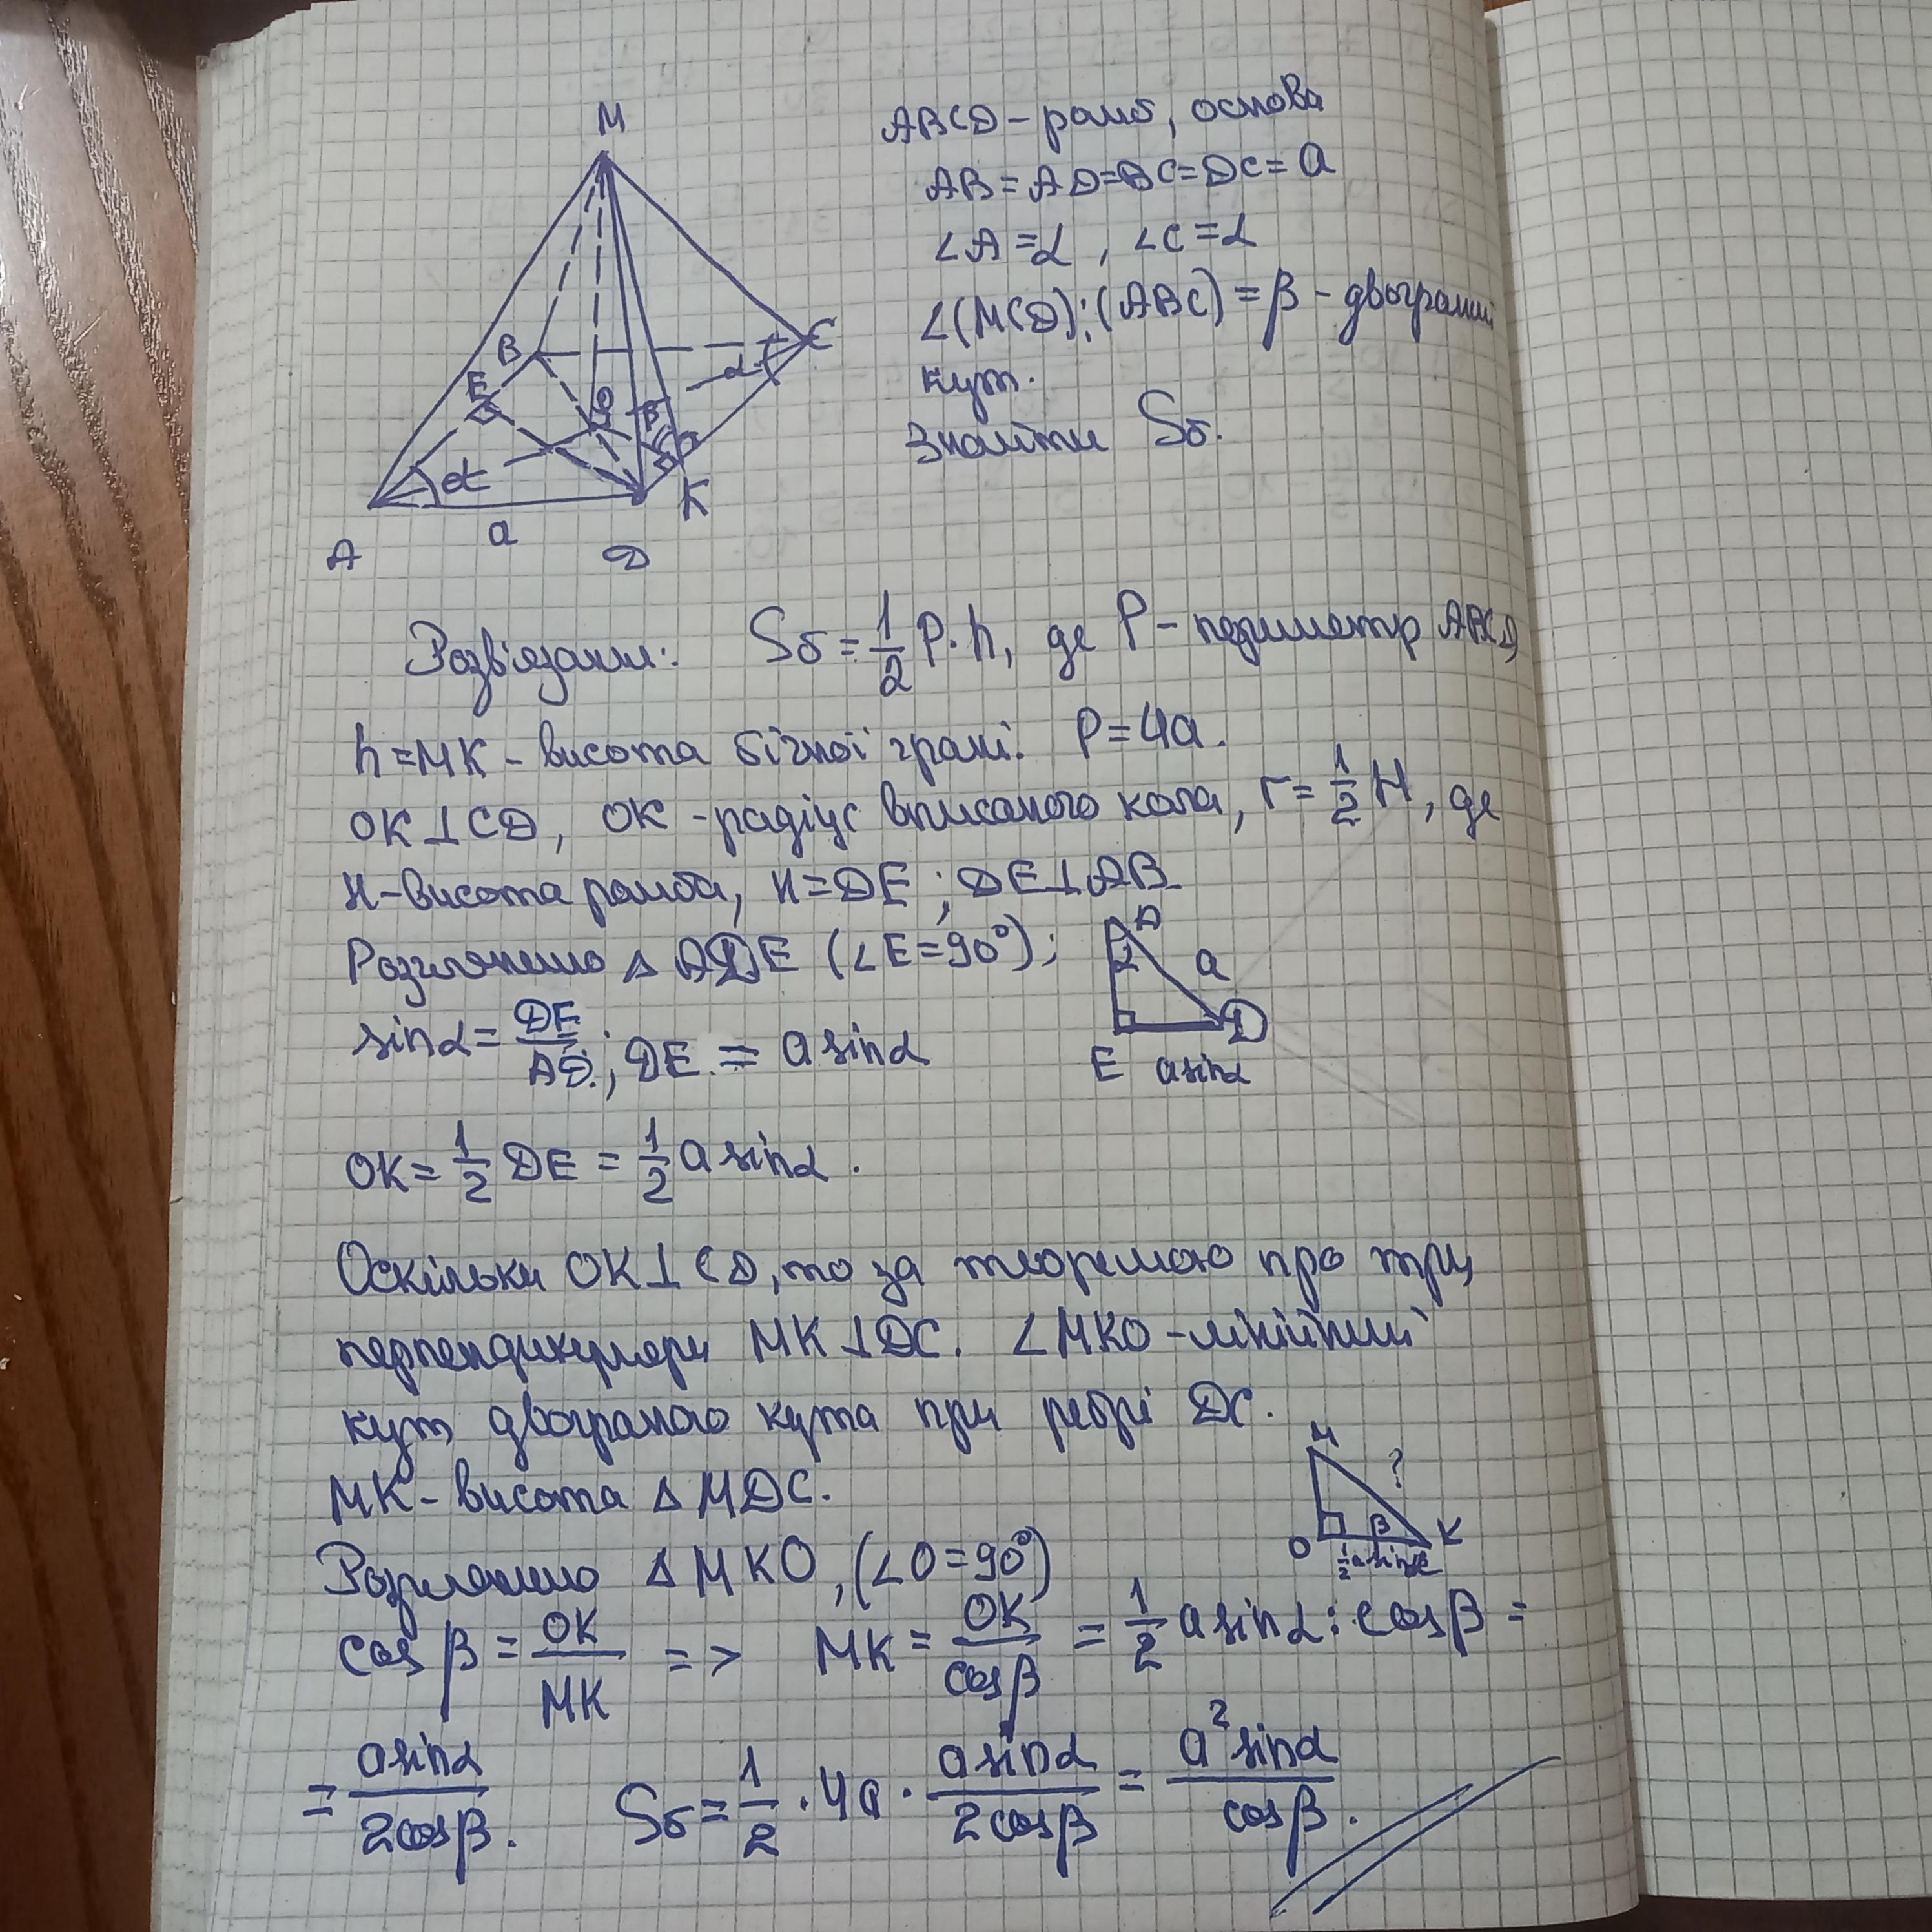 M
B
C
E
O
β
α
α
K
a
A
D
ABCD – ромб, основа
AB = AD = BC = DC = a
∠A = α, ∠C = α
∠(MCD);(ABC) = β – двогранний
кут.
Знайти Sб.
Розв'язання: Sб = 1/2 P·h, де P – периметр ABCD,
h = MK – висота бічної грані. P = 4a.
OK ⊥ CD, OK – радіус вписаного кола, r = 1/2 H, де
H – висота ромба, H = DE; DE ⊥ AB
Розглянемо △ ADE (∠E = 90°);
A
α
a
D
E a sinα
sinα = DE/AD; DE = a sinα
OK = 1/2 DE = 1/2 a sinα.
Оскільки OK ⊥ CD, то за теоремою про три
перпендикуляри MK ⊥ DC. ∠MKO – лінійний
кут двогранного кута при ребрі DC.
MK – висота △ MDC.
M
?
O β K
1/2 a sinα
Розглянемо △ MKO, (∠O = 90°)
cos β = OK/MK => MK = OK/cosβ = 1/2 a sinα : cosβ =
= a sinα/2cosβ. Sб = 1/2 · 4a · a sinα/2cosβ = a² sinα/cosβ.